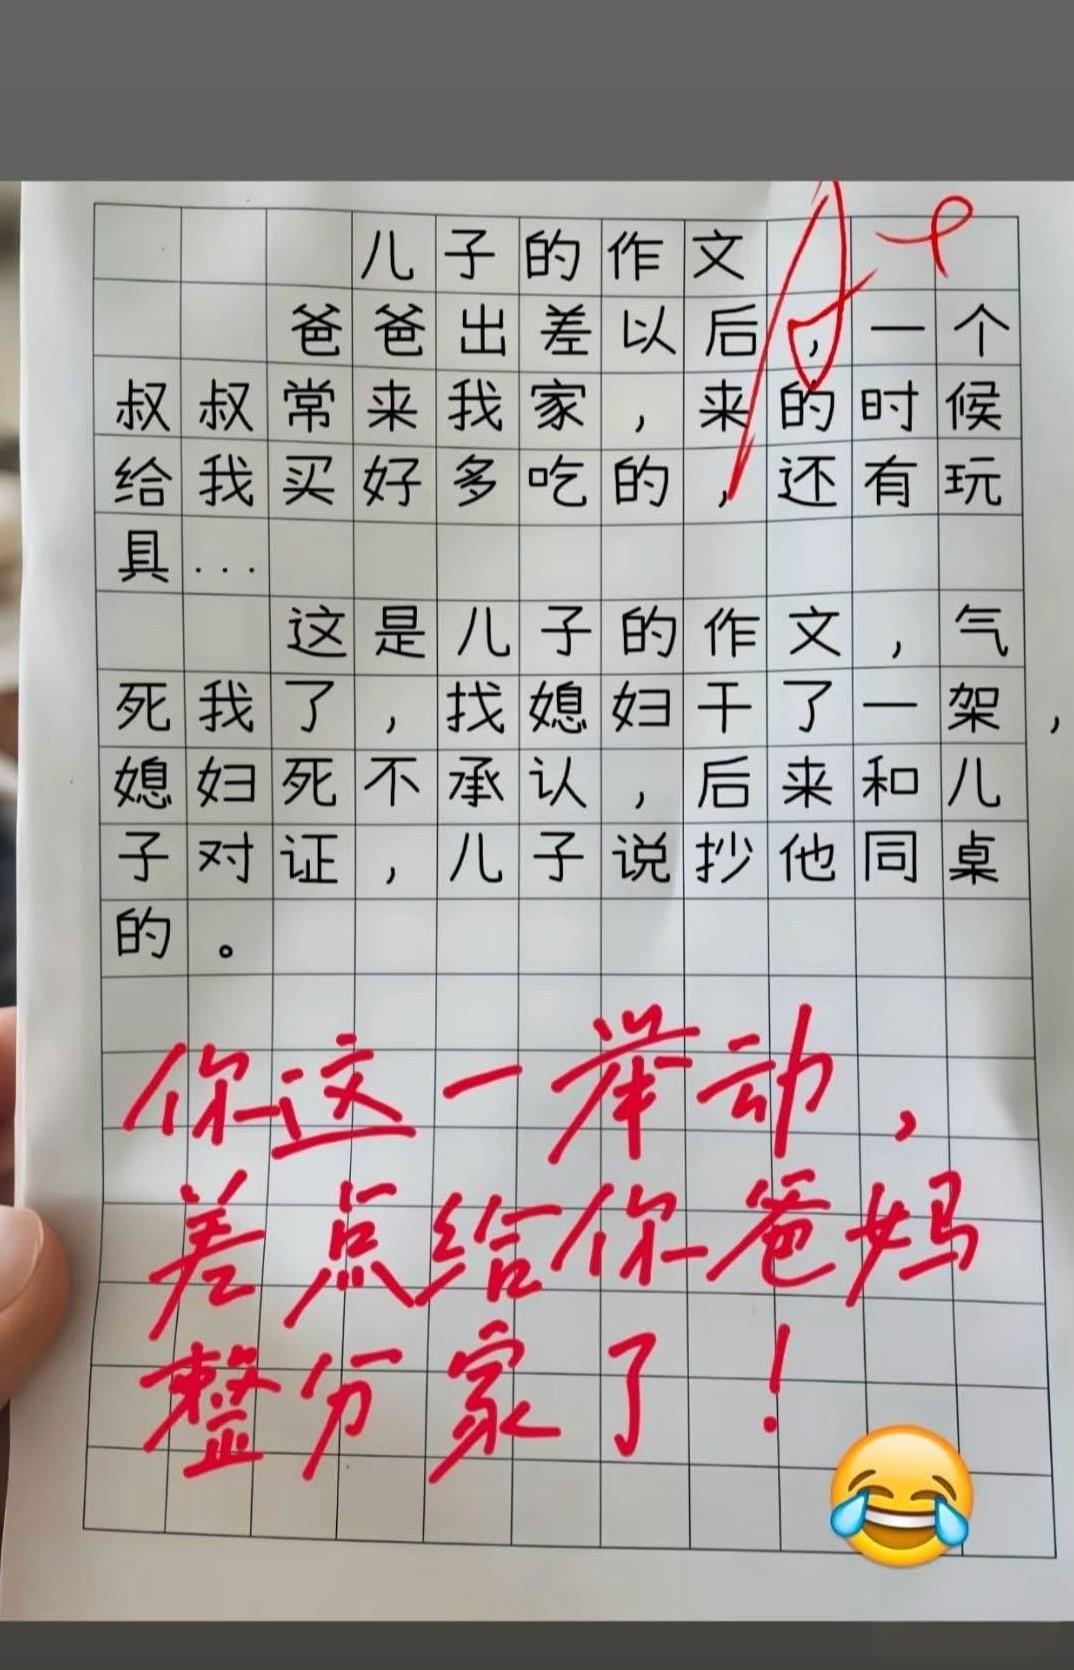 儿子的作文
爸爸出差以后，一个
叔叔常来我家，来的时候
给我买好多吃的，还有玩
具...
这是儿子的作文，气
死我了，找媳妇干了一架，
媳妇死不承认，后来和儿
子对证，儿子说抄他同桌
的。
你这一举动，
差点给你爸妈
整分家了！